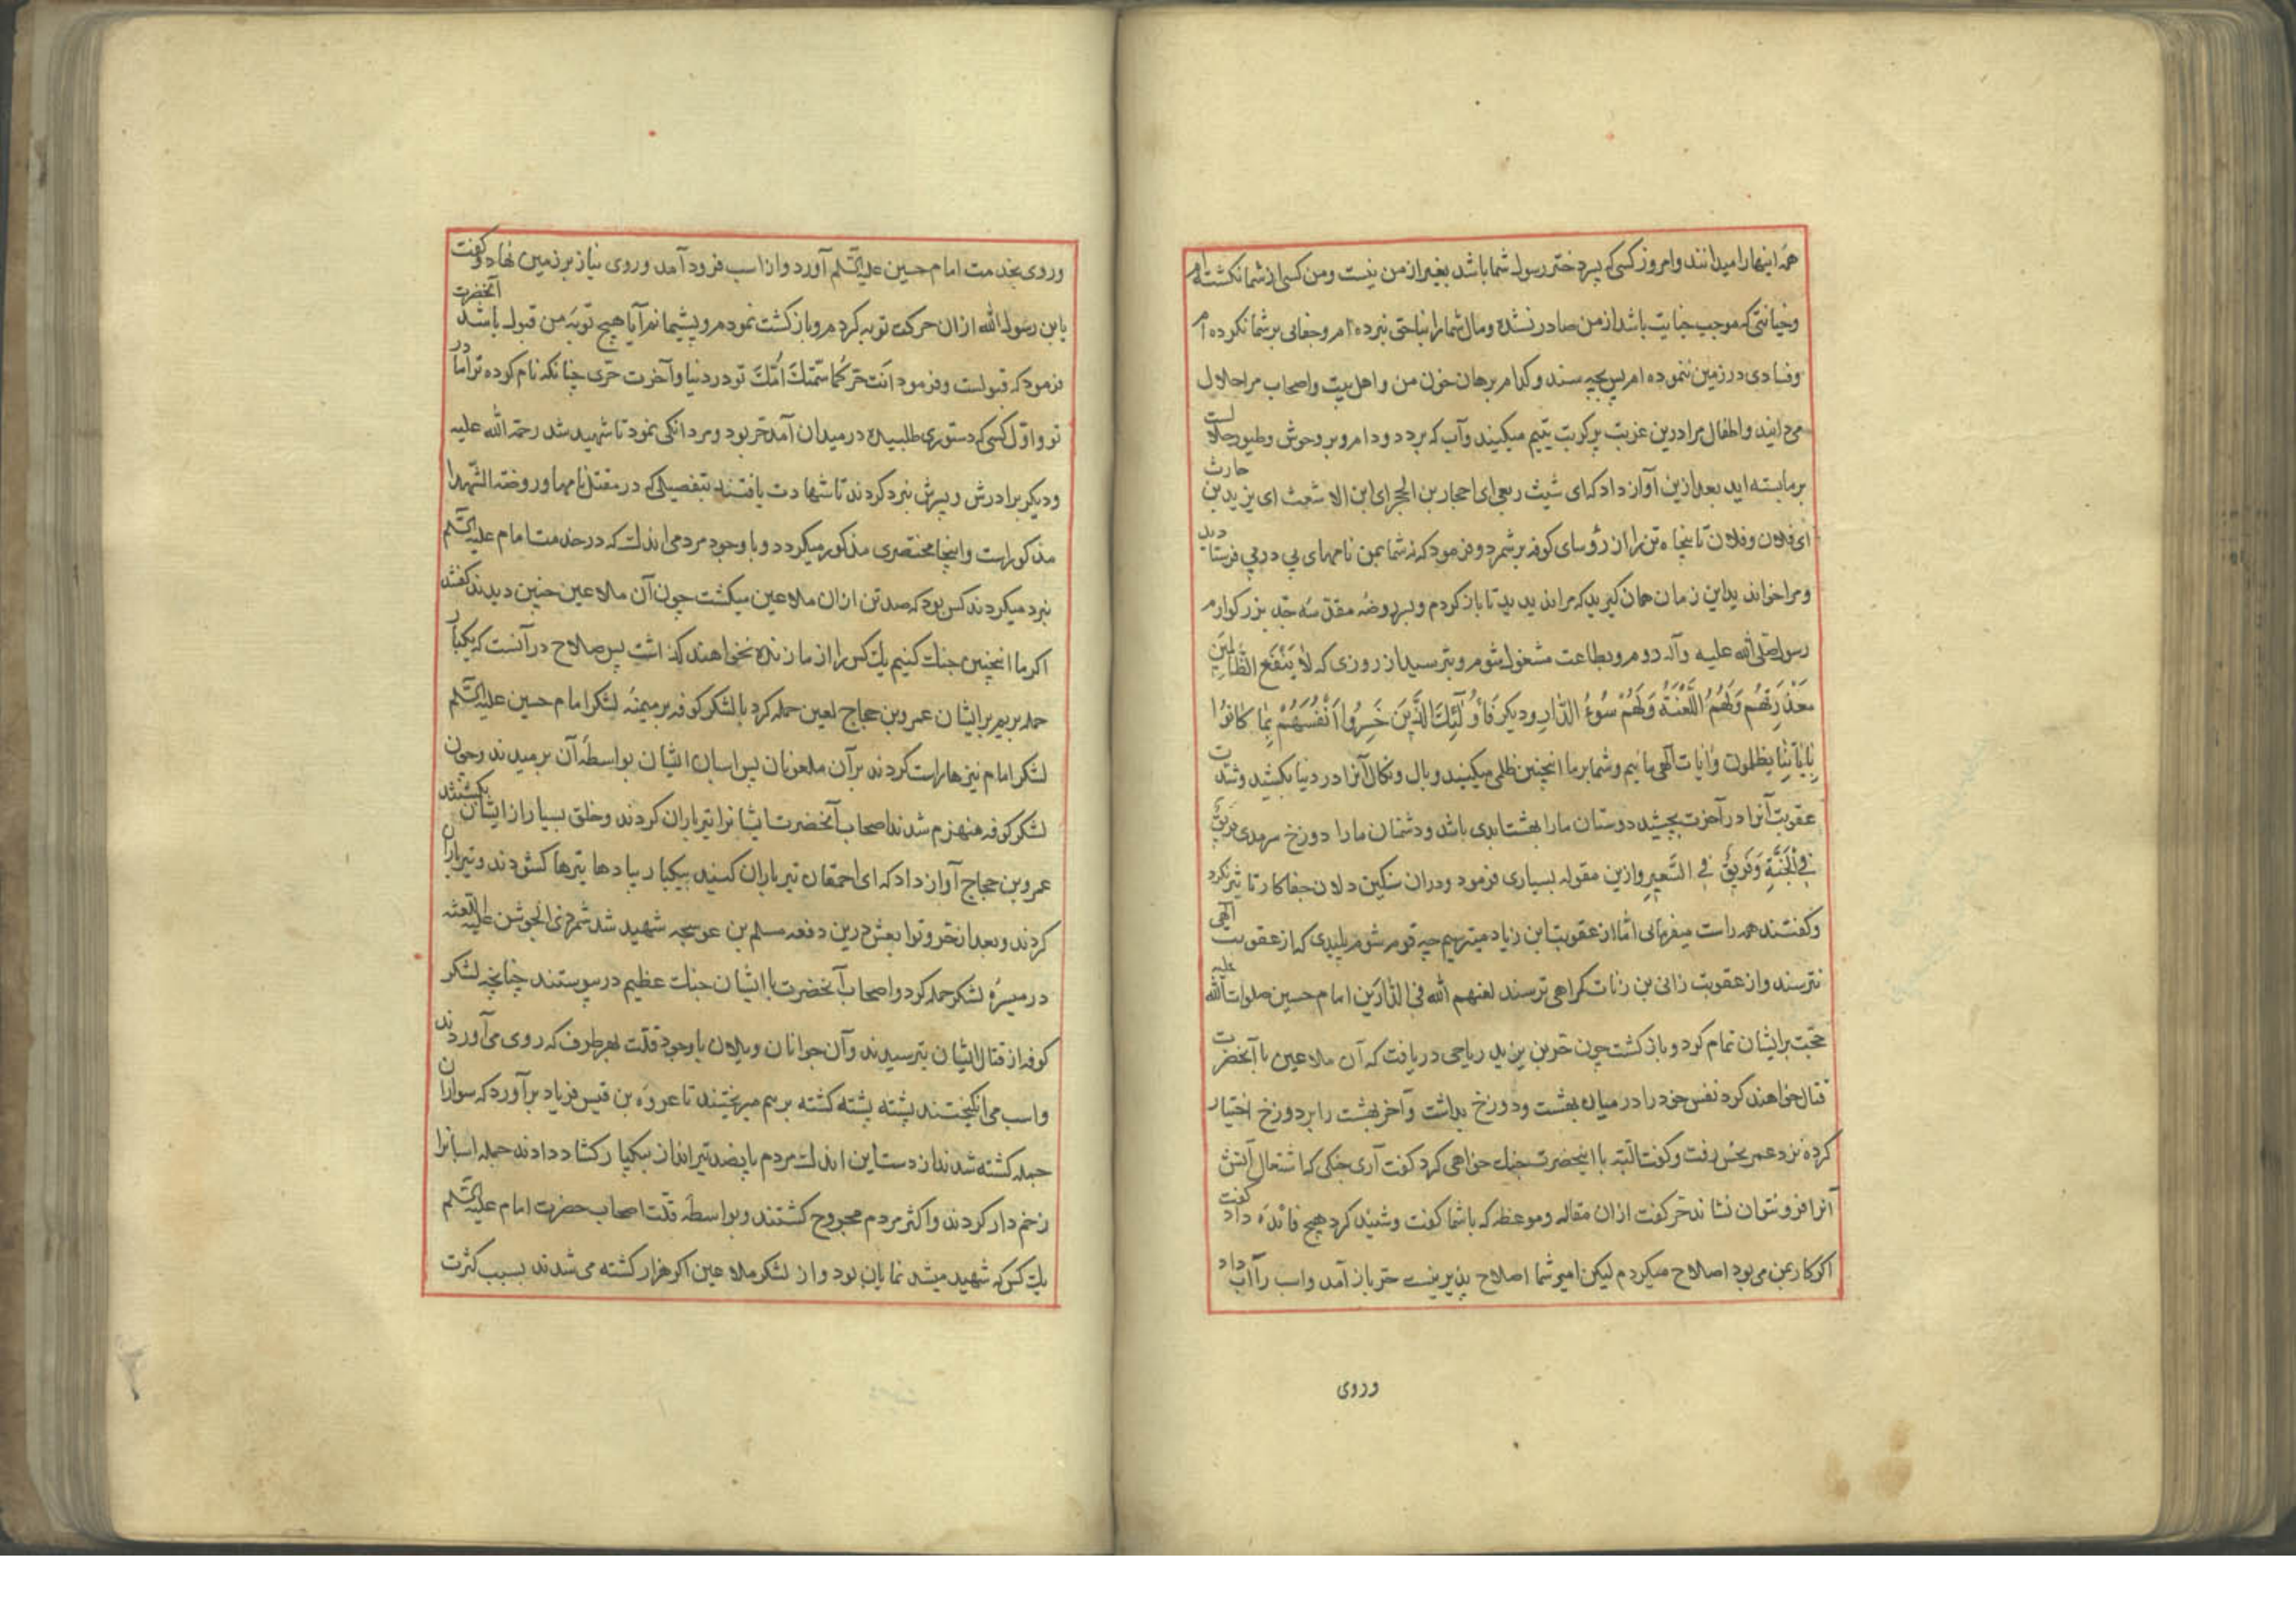 همه اینها را میدانند و امروز کسی که پسر دختر رسول شما باشد بغیر از من نیست و من کسی از شما نکشته ام
و خیانتی که موجب جنایت باشد از من صادر نشده و مال شما را بناحق نبرده ام و جفایی بر شما نکرده ام
و فسادی در زمین ننموده ام پس بچه سند و کدام برهان خون من و اهل بیت و اصحاب مرا حلال
میدانید و اطفال مرا درین غربت پر کربت یتیم میکنید و آب که بر دد و دام و بر وحوش و طیور حلالست
بر ما بسته اید بعد ازین آواز داد که ای شیث ربعی ای احجار بن الحجر ای ابن الاشعث ای یزید بن حارث
ای فلان و فلان تا پنجاه تن را از رؤسای کوفه بر شمرد و فرمود که نه شما بمن نامهای پی در پی فرستادید
و مرا خواندید این زمان همان گیرید که مرا ندیدید تا باز گردم و بسر روضهٔ مقدسه جد بزرگوارم
رسول صلی الله علیه و آله روم و بطاعت مشغول شوم و بترسید از روزی که لا یَنْفَع الظّالمینَ
مَعْذِرَتهُم وَلَهُم اللَّعْنَةُ وَلَهُمْ سُوءُ الدّارِ و دیگر فَأُولٰئِكَ الَّذینَ خَسِرُوا أَنْفُسَهُمْ بِمٰا كانُوا
بِاٰیاتِنٰا یظلمون و آیات آلهی مائیم و شما بر ما اینچنین ظلمی میکنید و بال و نکال آنرا در دنیا بکشید و شدت
عقوبت آنرا در آخرت بچشید دوستان ما را بهشت ابدی باشد و دشمنان ما را دوزخ سرمدی فریقٌ
فِی الْجَنَّةِ وَفَریقٌ فِی السَّعیرِ و ازین مقوله بسیاری فرمود و در ان سنگین دلان جفاکار تاثیر نکرد
و گفتند همه راست میفرمائی امّا از عقوبت ابن زیاد میترسیم چه قوم شوم پلیدی که از عقوبت الهی
نترسند و از عقوبت زانی بن زناتگراهی ترسند لعنهم الله فی الدّارَین امام حسین صلوات الله علیه
حجّت بر ایشان تمام کرد و باز گشت چون حر بن یزید ریاحی دریافت که آن ملاعین با آنحضرت
قتال خواهند کرد نفس خود را در میان بهشت و دوزخ بداشت و آخر بهشت را بر دوزخ اختیار
کرده نزد عمر نحس رفت و گفت البته با اینحضرت جنك خواهی کرد گفت آری جنگی که اشتعال آتش
آنرا فرو نتوان نشاند حر گفت ازان مقاله و موعظه که با شما گفت و شنید کرد هیچ فائده داد گفت
اگر کار بمن می بود اصلاح میکردم لیکن امیر شما اصلاح پذیر نیست حر باز آمد و اسب را آب داد
وروی
و روی بخدمت امام حسین علیه السّلم آورد و از اسب فرود آمد و روی نیاز بر زمین نهاد و گفت
یا بن رسول الله ازان حرکت توبه کردم و باز گشت نمودم و پشیمانم آیا هیچ توبهٔ من قبول باشد آنحضرت
فرمود که قبولست و فرمود انت حر كما سمّتكَ اُمّكَ تو در دنیا و آخرت حرّی چنانکه نام کرده ترا مادر
تو و اوّل کسی که دستوری طلبیده در میدان آمد حر بود و مردانگی نمود تا شهید شد رحمة الله علیه
و دیگر برادرش و پسرش نبرد کردند تا شهادت یافتند بتفصیلی که در مقتل نامها و روضة الشّهدا
مذکور است و اینجا مختصری مذکور میگردد و با وجود مردمی اندك که در خدمت امام علیه السّلم
نبرد میکردند کس بود که صد تن ازان ملاعین میکشت چون آن ملاعین چنین دیدند گفتند
اگر ما اینچنین جنك کنیم یك کس را از ما زنده نخواهند گذاشت پس صلاح در آنست که یکبار
حمله بریم بر ایشان عمرو بن حجاج لعین حمله کرد با لشکر کوفه بر میمنهٔ لشکر امام حسین علیه السّلم
لشکر امام نیزها راست کردند بر آن ملعونان پس اسبان ایشان بواسطهٔ آن برمیدند و چون
لشکر کوفه منهزم شدند اصحاب آنحضرت ایشانرا تیر باران کردند و خلق بسیار از ایشان بکشتند
عمرو بن حجاج آواز داد که ای احمقان تیر باران کنید بیکبار بیادها تیرها کشودند و تیر باران
کردند و بعد از حر و توابعش درین دفعه مسلم بن عوسجه شهید شد شمر ذی الجوشن علیه اللعنه
در میسرهٔ لشکر حمله کرد و اصحاب آنحضرت با ایشان جنك عظیم در پیوستند چنانچه لشکر
کوفه از قتال ایشان بترسیدند و آن جوانان و یلان با وجود قلّت بهر طرف که روی می آوردند
و اسب می انگیختند پشته پشته کشته بر هم میریختند تا عروه بن قیس فریاد بر آورد که سواران
جمله کشته شدند از دست این اندك مردم پانصد تیر انداز بیکبار کشاد دادند جمله اسبانرا
زخم دار کردند و اکثر مردم مجروح گشتند و بواسطهٔ قلّت اصحاب حضرت امام علیه السّلم
یك کس که شهید میشد نمایان بود و از لشکر ملاعین اگر هزار کشته می شدند بسبب کثرت